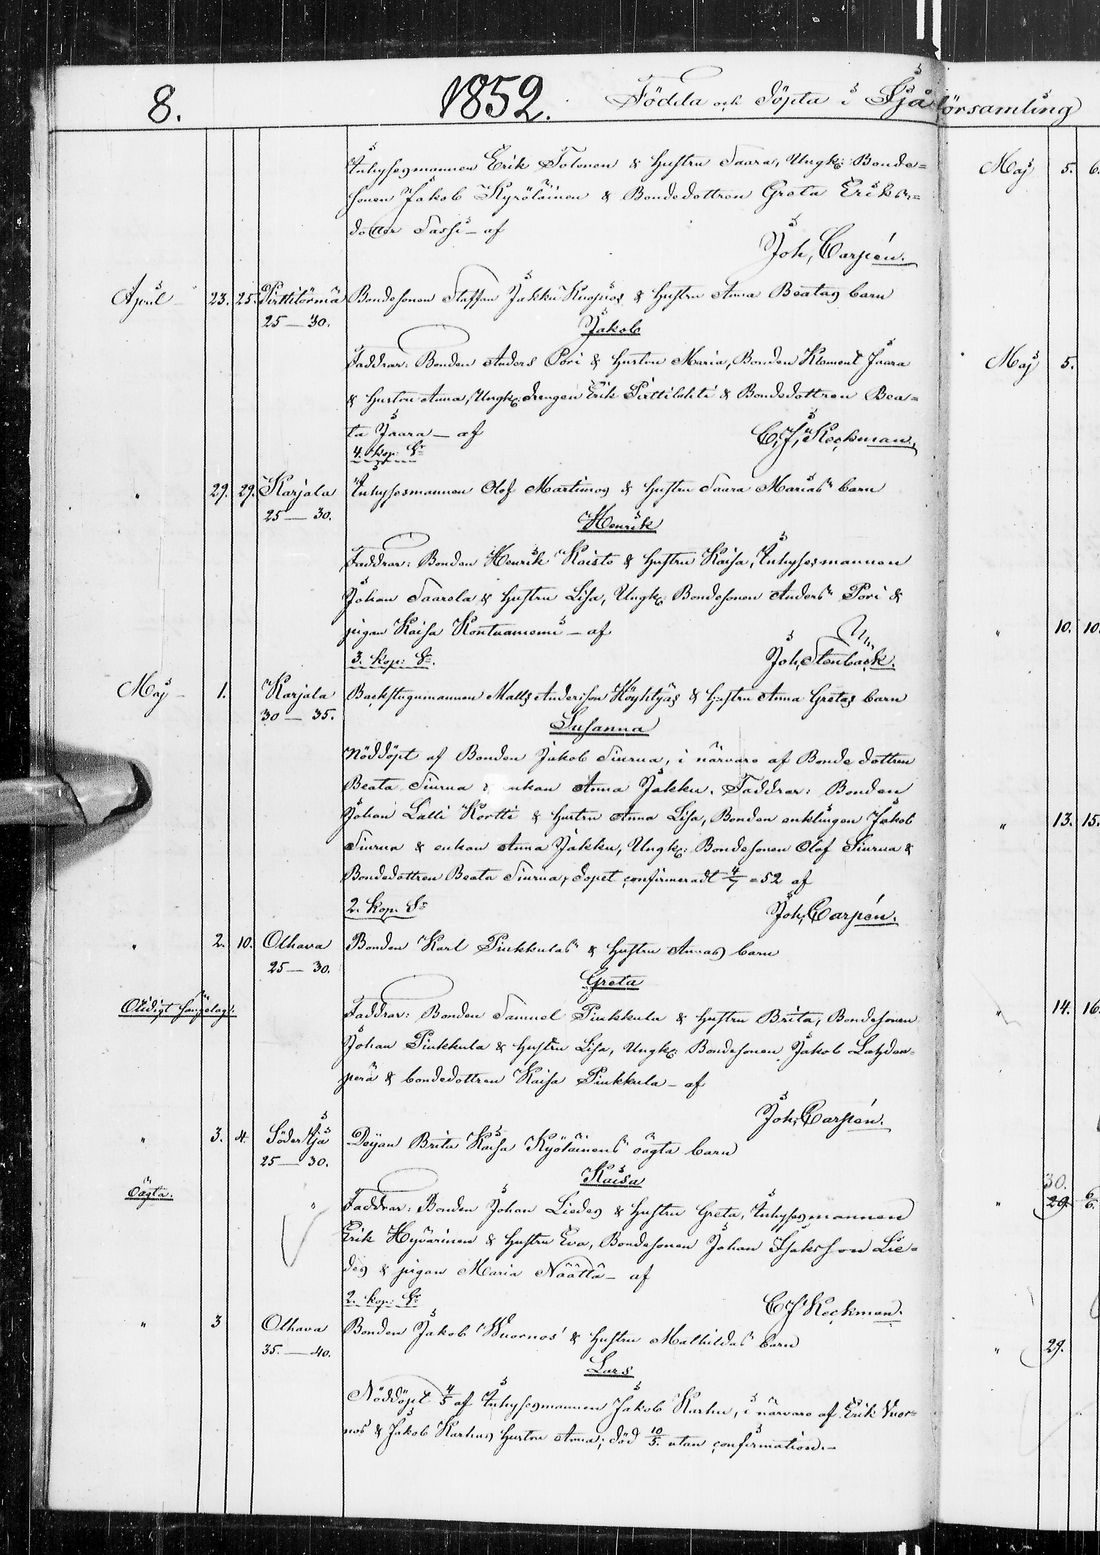 8. 1852. Födda och döpta i Ijå församling
Inhysesmannen Erik Tolonen & hustru Saara, Ungk: Bonde-
sonen Jakob Kyröläinen & Bondedottren Greta Eriks-
dotter Tassi – af
Joh. Carpén.
April 23. 25. Pirttitörmä Bondesonen Staffan Jakku Kuopus & hustru Anna Beatas barn
25 — 30. Jakob
Faddrar: Bonden Anders Pori & hustru Maria, Bonden Klement Jaara
& hustru Anna, Ungk: drengen Erik Pirttilahti & Bondedottren Bea-
ta Jaara – af C. J. Keckman.
4. kop: Sr
" 29. 29. Karjala Inhysesmannen Olof Martimos & hustru Saara Marias barn
25 — 30. Henrik
Faddrar: Bonden Henrik Koisto & hustru Kaisa, Inhysesmannen
Johan Saarela & hustru Lisa, Ungk: Bondesonen Anders Pori &
pigan Kaisa Kontuaniemi – af
3. kop: Sr. Joh. Stenbäck.
Maj 1. Karjala Backstugumannen Matts Andersson Höyhtyäs & hustru Anna Gretas barn
30 — 35. Susanna
Nöddöpt af Bonden Jakob Siurua, i närvaro af Bondedottren
Beata Siurua enkan Anna Jakku. Faddrar: Bonden
Johan Lalli Kortti & hustru Anna Lisa, Bonden enklingen Jakob
Siurua & enkan Anna Jakku, Ungk: Bondesonen Olof Siurua &
Bondedottren Beata Siurua, dopet confirmeradt 4/7 52 af
2. kop. Sr Joh. Carpén.
" 2. 10. Olhava Bonden Karl Pinkkulas & hustru Annas barn
25 — 30. Greta
Faddrar: Bonden Samuel Pinkkula & hustru Brita, Bondesonen
Johan Pinkkula & hustru Lisa, Ungk: Bondesonen Jakob Lahden-
perä & bondedottren Kaisa Pinkkula – af
Joh. Carpén.
" 3. 4. Söder Ijå Pigan Brita Kaisa Kyöläinens oägta barn
25 — 30. Kaisa
Oägta. Faddrar: Bonden Johan Liedes & hustru Greta, Inhysesmannen
Erik Hyvärinen & hustru Eva, Bondesonen Johan Isaksson Lie-
des & pigan Maria Näätta – af
2. kop: Sr C J Keckman.
" 3 Olhava Bonden Jakob Kuornos & hustru Mathildas barn
35. — 40. Lars
Nöddöpt 4/5 af Inhysesmannen Jakob Karhu, i närvaro af Erik Vuor-
nos & Jakob Karhus hustru Anna; död 10/5. utan confirmation. –
Maj 5. 6.
Maj 5.
" 10. 10.
" 13. 15.
" 14. 16.
30.
" 29. 6/6.
" 29.